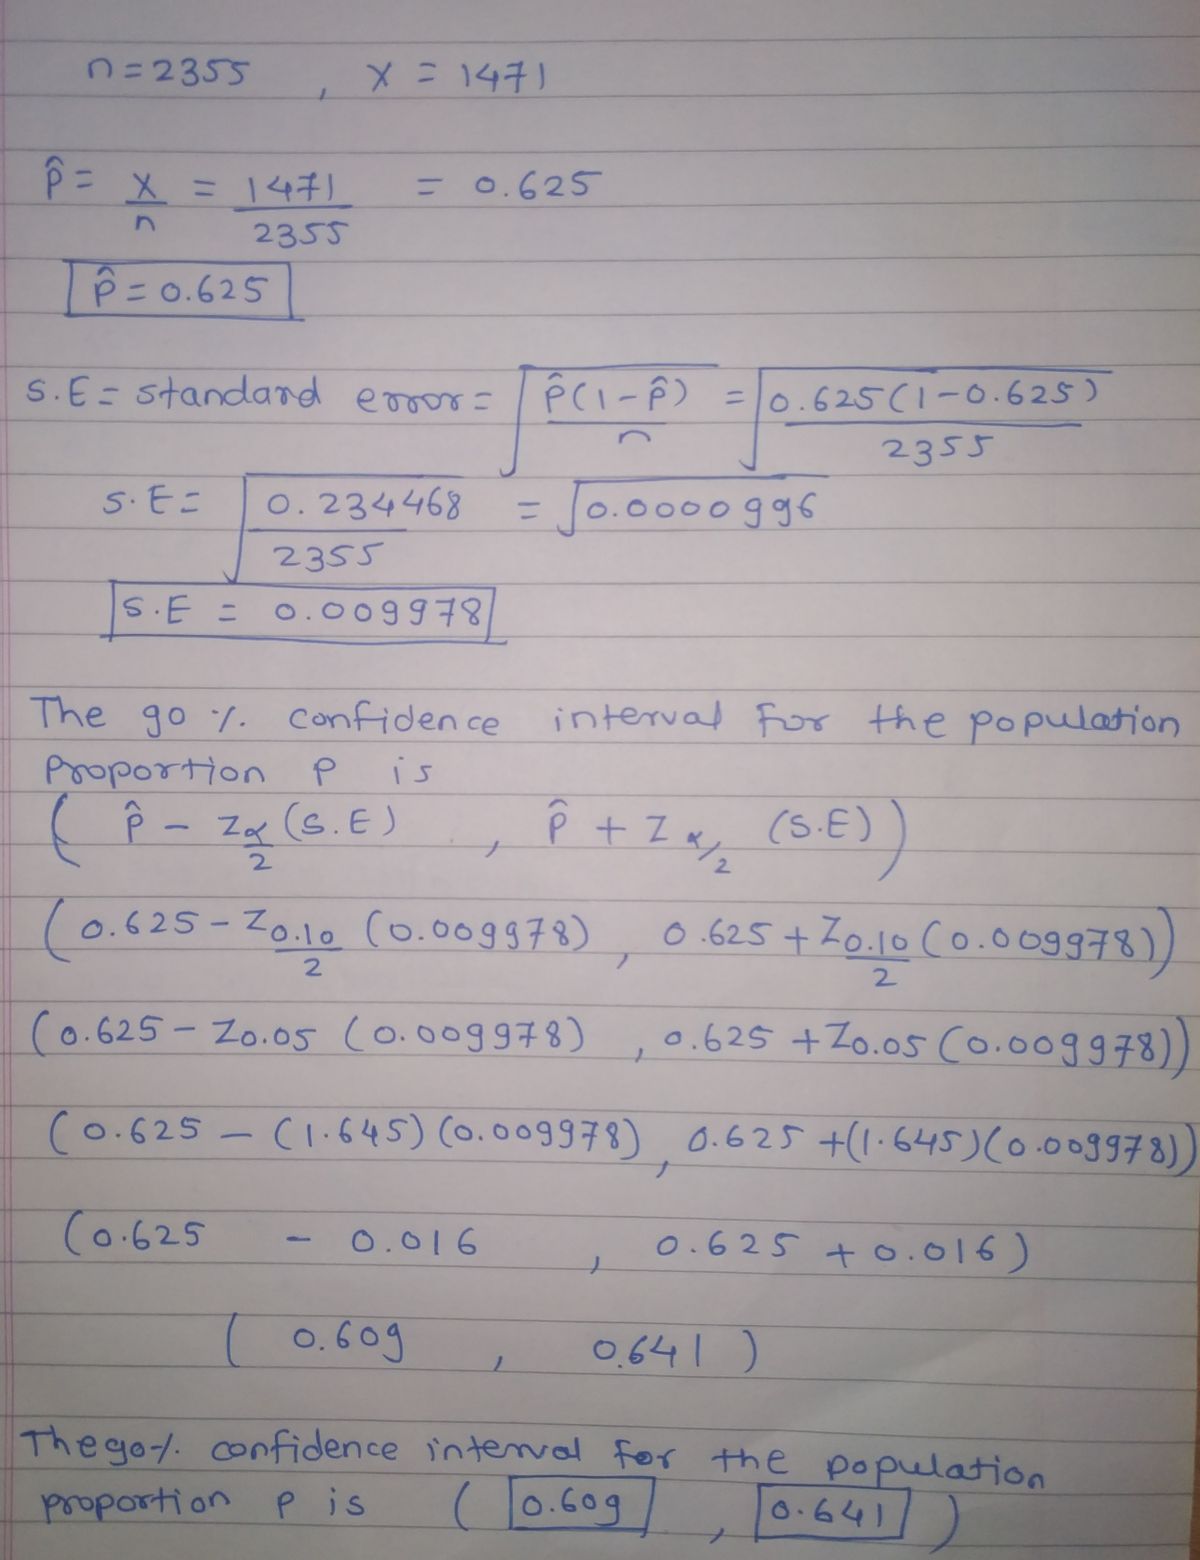 n=2355 , x = 1471
p̂ = x/n = 1471/2355 = 0.625
p̂ = 0.625
S.E = standard error = √(p̂(1-p̂)/n) = √(0.625(1-0.625)/2355)
S.E = √(0.234468/2355) = √0.0000996
S.E = 0.009978
The 90 % confidence interval for the population
proportion p is
( p̂ - Zα/2 (S.E) , p̂ + Zα/2 (S.E) )
( 0.625 - Z0.10/2 (0.009978) , 0.625 + Z0.10/2 (0.009978) )
(0.625 - Z0.05 (0.009978) , 0.625 + Z0.05 (0.009978))
(0.625 - (1.645)(0.009978) , 0.625 +(1.645)(0.009978))
(0.625 - 0.016 , 0.625 + 0.016)
( 0.609 , 0.641 )
The 90% confidence interval for the population
proportion p is ( 0.609 , 0.641 )